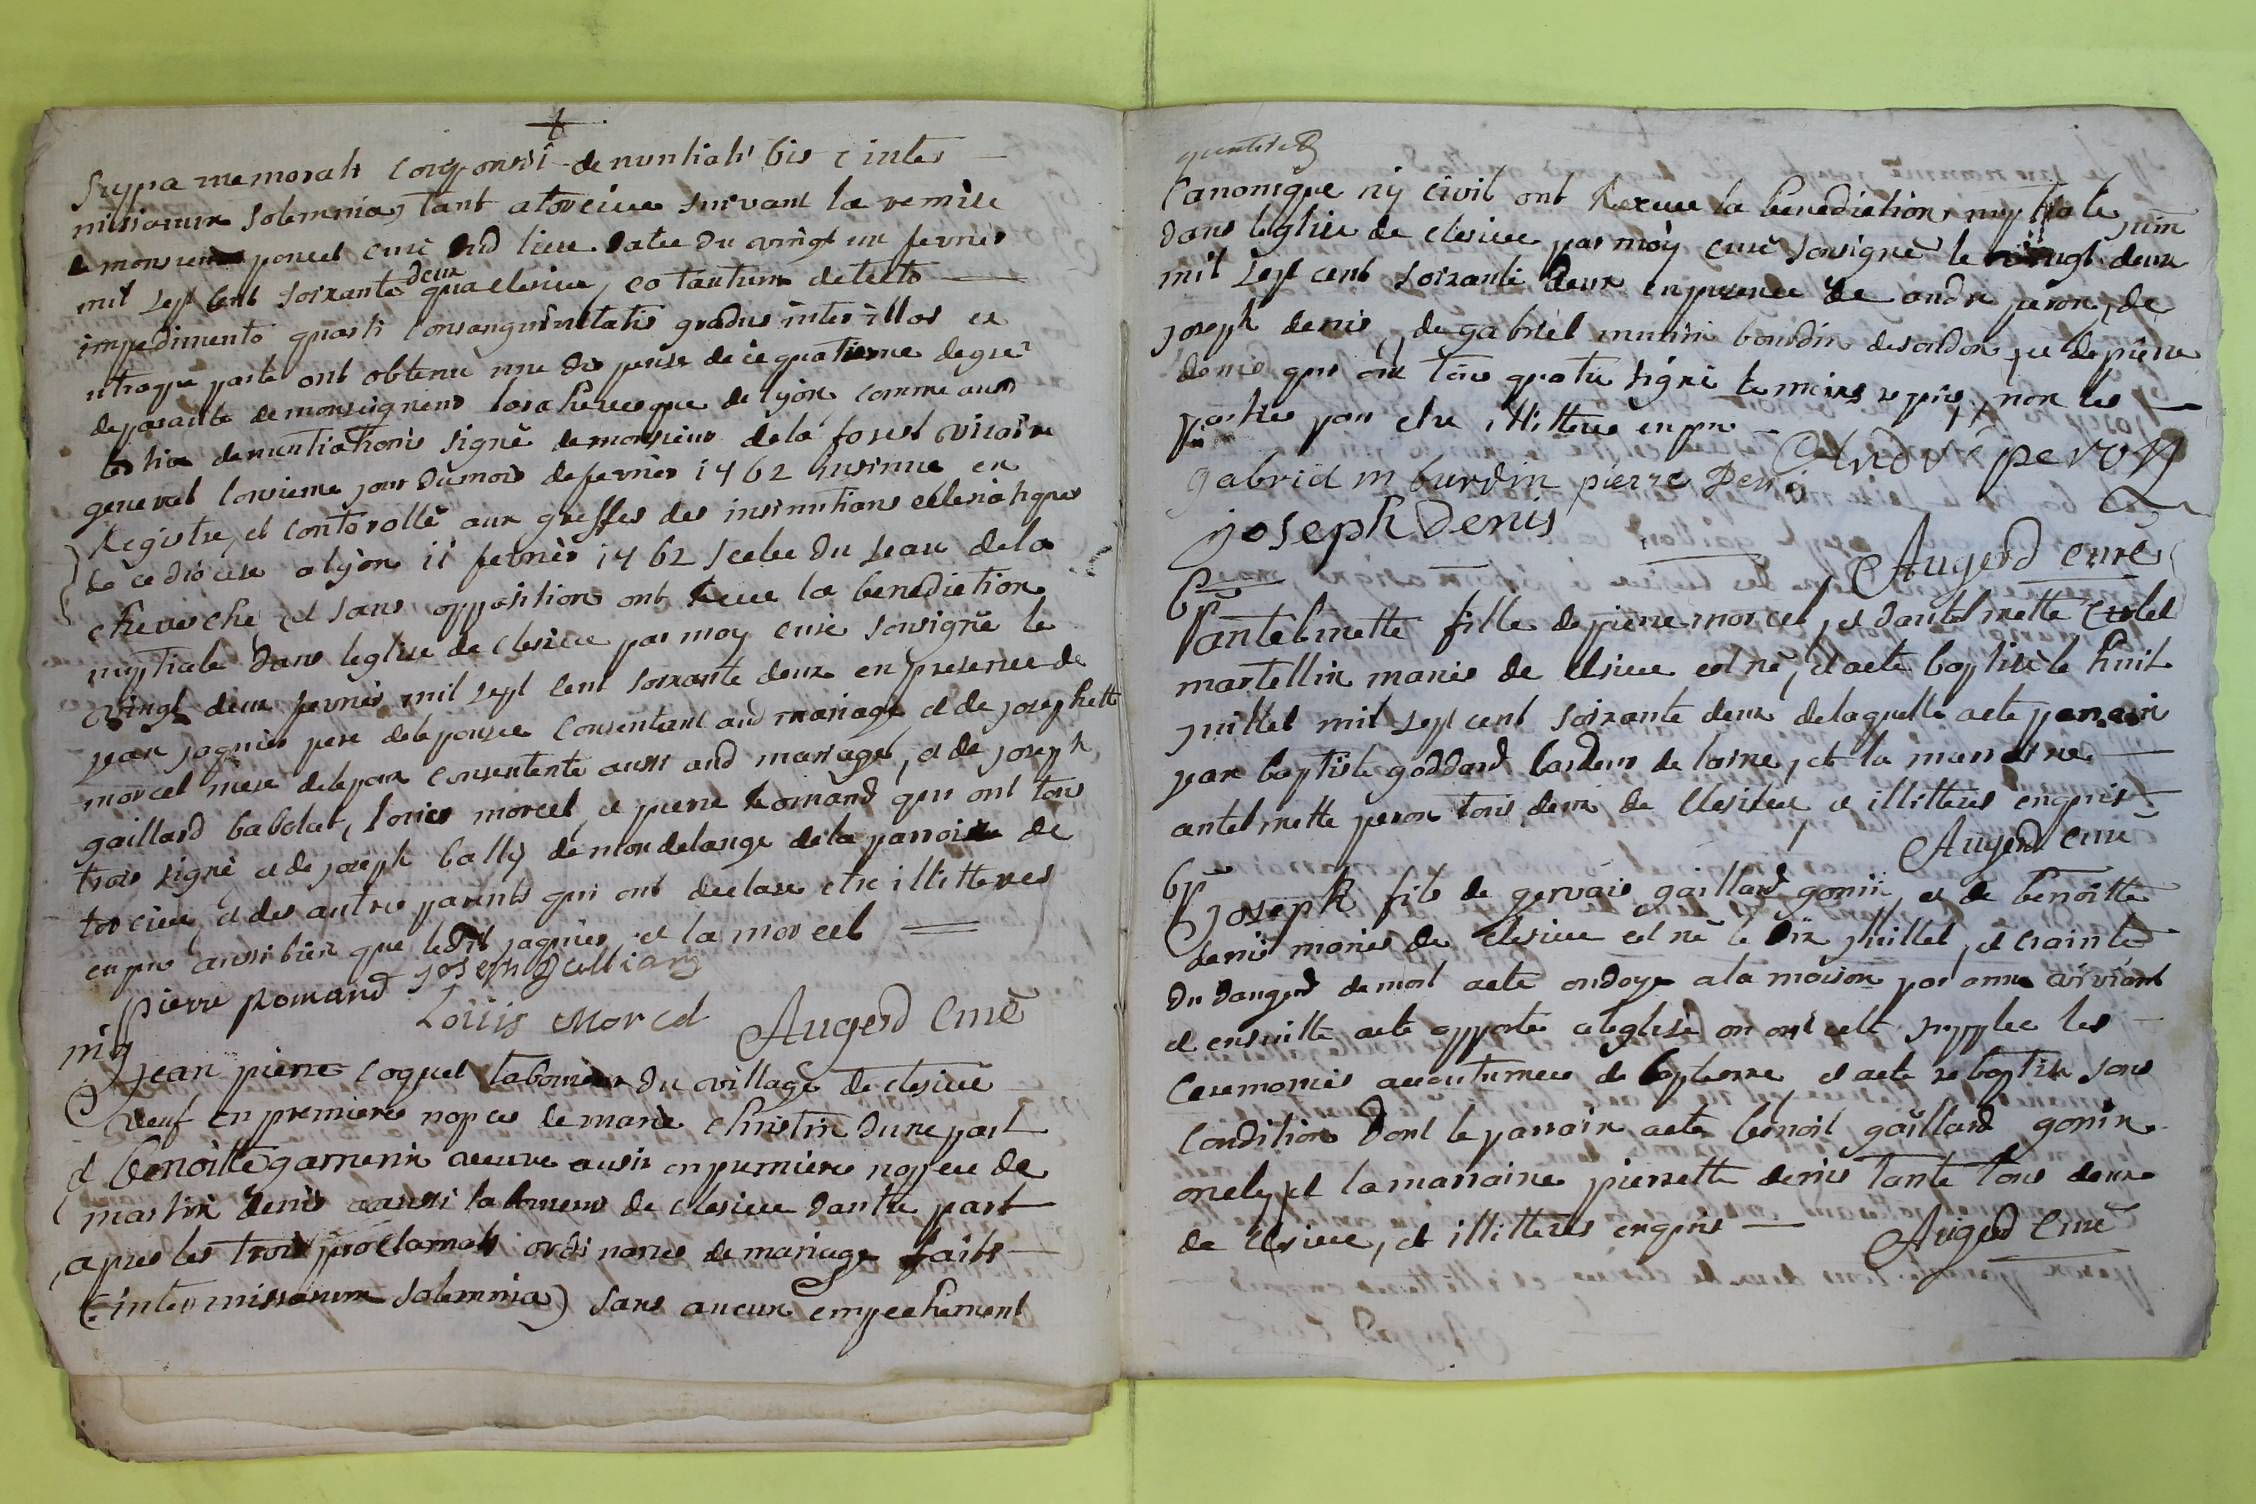 Suppa memorati denuntiati bis (inter
missarum solemnia) tant a torcieu suivant la remise
monsieur poncet curé dud lieu datée du vingt un fevrier
mil sept cent soixante deux qua clesieu, eo tantum detecto
impedimento quarti consanguinitatis gradus inter illos ex
utraque parte ont obtenu une dispense de ce quatrieme degré
de parenté de monseigneur larchevesque de lyon comme aussi
tertiae denuntiationis signé de monsieur de la forest vicaire
general lonsieme jour du mois de fevrier 1762 insinué en
Registre, et controllé aux greffes des insinuations eclesiastiques
de ce diocese a lyon 11 fevrier 1762 scelée du sceau de la
cheveché, et sans opposition ont Receu la benediction
nuptiale dans leglise de clesieu par moy curé sousigné le
vingt deux fevrier mil sept cent soixante deux en presence de
jean jagnier pere de lepouse consentant aud mariage et de josephette
morcel mere de lepoux consentente aussi aud mariage, et de joseph
gaillard babolat, louies morcel, et pierre Romand qui ont tous
trois signé et de joseph bally de mondelange de la parroisse de
torcieu, et des autres parents qui ont declaré etre illitteres
enquis aussi bien que ledit jagnier, et la morcel
pierre romand joseph
Loüis Morcel Augerd Curé
jean pierre coquet laboureur du village de clesieu
veuf en premieres nopces de marie christin dune part
et benoitte garnerin veuve aussi en premiere nopces de
martin denis aussi laboureur de clesieu dautre part
apres les trois proclamats ordinaires de mariage faits
(inter missarum solemnia) sans aucun empechement
Canonique ny civil ont Receue la benediction nuptiale
dans leglise de clesieu par moy curé sousigné le vingt deux juin
mil sept cent soixante deux en presence de andre peron, de
joseph denis, de gabriel bourdin, et de pierre
denis qui ont tous quatre signé requis, non les
parties pour etre illitteres enquis
André peron
gabriel m burdin pierre Denis
joseph Denis
Augerd curé
antelmette fille de pierre morcel, et dantelmette
martellin mariés de clesieu est né, et a eté baptisé le huit
juillet mil sept cent soixante deux de laquelle a eté parrain
jean baptiste goddard de laine, et la marraine
antelmette peron tous deux de clesieu et illitteres enquis
Augerd curé
joseph fils de gervais gaillard gonin et de benoitte
denis mariés de clesieu est né le dix juillet, et crainte
du danger de mort a eté ondoyé a la maison par anne
et ensuitte a eté apporté a leglise ou ont eté supplée les
ceremonies accoutumées de bapteme, et a eté rebaptisé sous
Condition dont le parrain a eté benoit gaillard gonin
oncle, et la marraine pierrette denis tante tous deux
de clesieu, et illitteres enquis
Augerd Curé